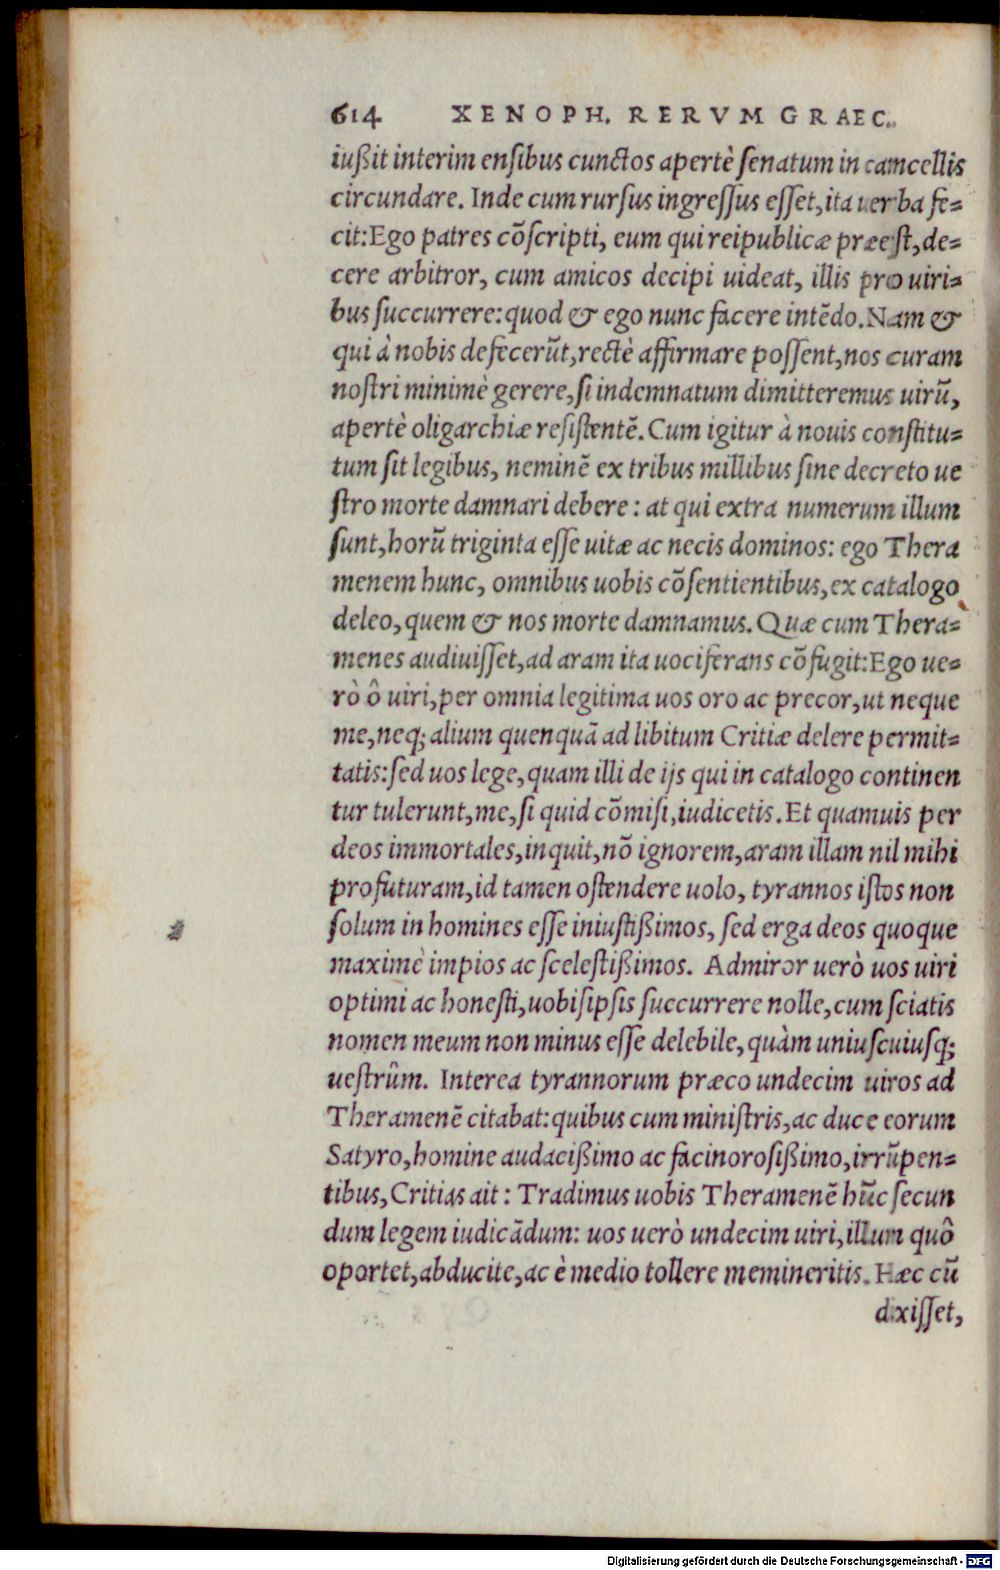 614 XENOPH. RERVM GRAEC.
iußit interim ensibus cunctos apertè senatum in camcellis
circundare. Inde cum rursus ingressus esset, ita uerba fe=
cit: Ego patres cõscripti, eum qui reipublicæ præest, de=
cere arbitror, cum amicos decipi uideat, illis pro uiri=
bus succurrere: quod & ego nunc facere intẽdo. Nam &
qui à nobis defecerũt, rectè affirmare possent, nos curam
nostri minimè gerere, si indemnatum dimitteremus uirũ,
apertè oligarchiæ resistentẽ. Cum igitur à nouis constitu=
tum sit legibus, neminẽ ex tribus millibus sine decreto ue
stro morte damnari debere : at qui extra numerum illum
sunt, horũ triginta esse uitæ ac necis dominos: ego Thera
menem hunc, omnibus uobis cõsentientibus, ex catalogo
deleo, quem & nos morte damnamus. Quæ cum Thera=
menes audiuisset, ad aram ita uociferans cõfugit: Ego ue=
rò ô uiri, per omnia legitima uos oro ac precor, ut neque
me, neq; alium quenquã ad libitum Critiæ delere permit=
tatis: sed uos lege, quam illi de ijs qui in catalogo continen
tur tulerunt, me, si quid cõmisi, iudicetis. Et quamuis per
deos immortales, inquit, nõ ignorem, aram illam nil mihi
profuturam, id tamen ostendere uolo, tyrannos istos non
solum in homines esse iniustißimos, sed erga deos quoque
maximè impios ac scelestißimos. Admiror uerò uos uiri
optimi ac honesti, uobisipsis succurrere nolle, cum sciatis
nomen meum non minus esse delebile, quàm uniuscuiusq;
uestrûm. Interea tyrannorum præco undecim uiros ad
Theramenẽ citabat: quibus cum ministris, ac duce eorum
Satyro, homine audacißimo ac facinorosißimo, irrũpen=
tibus, Critias ait : Tradimus uobis Theramenẽ hũc secun
dum legem iudicãdum: uos uerò undecim uiri, illum quô
oportet, abducite, ac è medio tollere memineritis. Hæc cũ
dixisset,
Digitalisierung gefördert durch die Deutsche Forschungsgemeinschaft - DFG